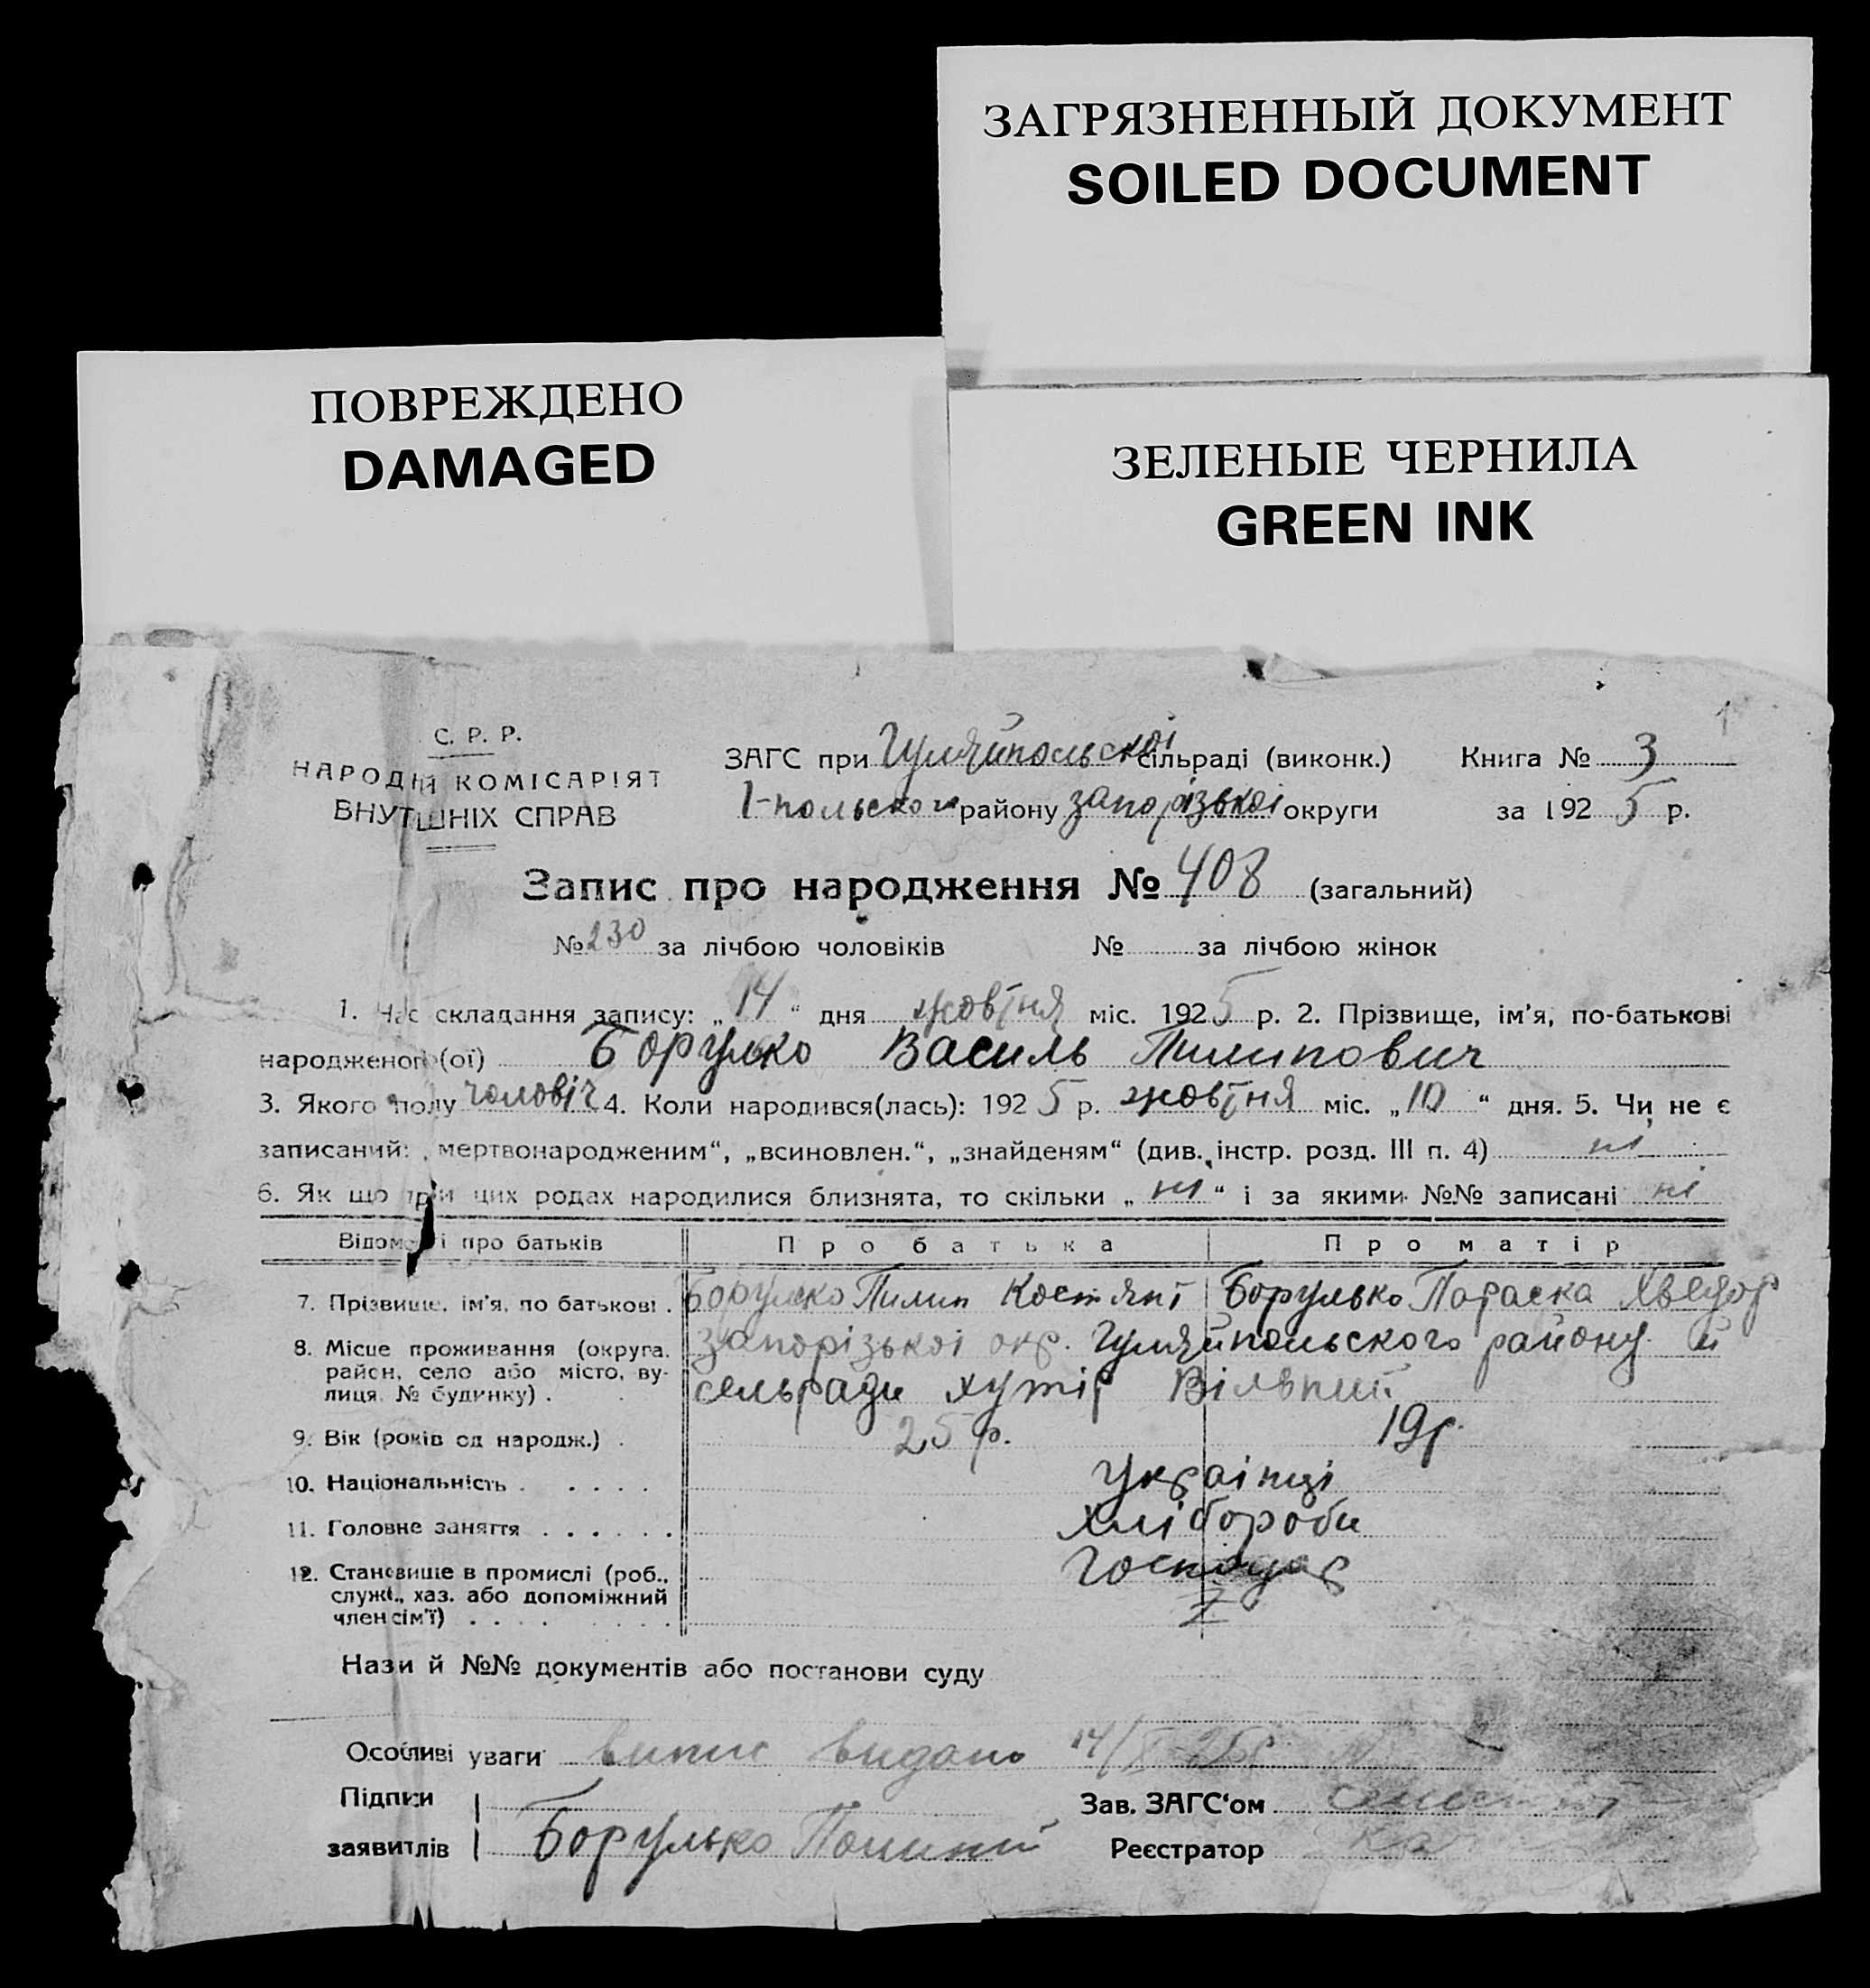 ЗАГРЯЗНЕННЫЙ ДОКУМЕНТ
SOILED DOCUMENT
ПОВРЕЖДЕНО
DAMAGED
ЗЕЛЕНЫЕ ЧЕРНИЛА
GREEN INK
С. Р. Р.
НАРОДНІЙ КОМІСАРІЯТ
ВНУТІШНІХ СПРАВ
ЗАГС при Гуляйпольскоі сільраді (виконк.) Книга № 3
Г-польского району запорізькоі округи за 1925 р.
Запис про народження № 408 (загальний)
№ 230 за лічбою чоловіків № за лічбою жінок
1. Час складання запису: „14“ дня жовтня міс. 1925 р. 2. Прізвище, ім'я, по-батькові
народженого (ої) Борулько Василь Пилипович
3. Якого полу чоловіч 4. Коли народився(лась): 1925 р. жовтня міс. „10“ дня. 5. Чи не є
записаний: „мертвонародженим“, „всиновлен.“, „знайденям“ (див. інстр. розд. III п. 4) ні
6. Як що при цих родах народилися близнята, то скільки „ні“ і за якими №№ записані ні
Відомості про батьків Про батька Про матір
7. Прізвище, ім'я, по батькові . Борулько Пилип Костянт Борулько Параска Хведор
8. Місце проживання (округа, район, село або місто, вулиця, № будинку) . запорізькоі окр. Гуляйпольского району й
сельради хутір
9. Вік (років од народж.) . 25 р. 19 р.
10. Національність . . . . . Украінці
11. Головне заняття . . . . . . Хлібороби
12. Становище в промислі (роб., служ., хаз. або допоміжний член сім'ї) . . . . Господар
Назви й №№ документів або постанови суду
Особливі уваги випис видано 14/X-25р
Підписи
заявитлів Борулько
Зав. ЗАГС'ом
Реєстратор